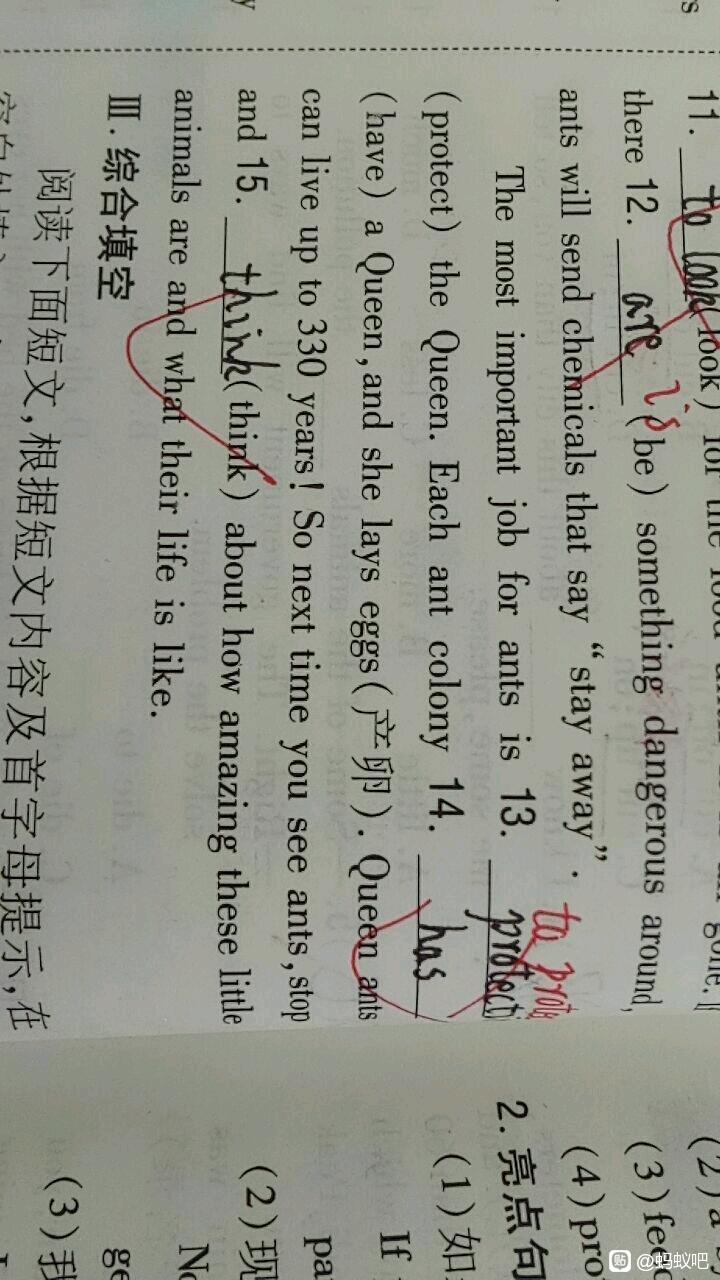 11. to look (look) for the food
there 12. are is (be) something dangerous around,
ants will send chemicals that say “stay away”.
The most important job for ants is 13. protect to
(protect) the Queen. Each ant colony 14. has
(have) a Queen, and she lays eggs(产卵). Queen ants
can live up to 330 years! So next time you see ants, stop
and 15. think (think) about how amazing these little
animals are and what their life is like.
Ⅲ. 综合填空
阅读下面短文,根据短文内容及首字母提示,在
(3)
(4) pro
2. 亮点句
(1) 如
If
pa
(2) 现
No
ge
(3) 我
贴 @蚂蚁吧